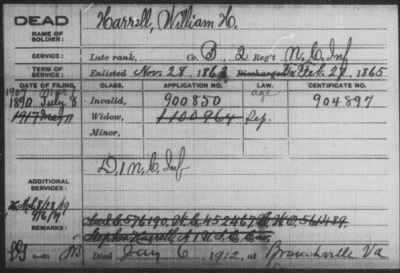 DEAD
NAME OF SOLDIER:
Harrell, William H.
SERVICE:
Late rank, Co. B. 2 Reg't N.C. Inf
TERM OF SERVICE:
Enlisted Nov. 28. 1863 Discharged Feb. 27, 1865
DATE OF FILING.
CLASS.
APPLICATION NO.
LAW.
CERTIFICATE NO.
1907
age
1890 July 8
Invalid,
900850
904897
1917 May 17
Widow,
1100964
Minor,
ADDITIONAL SERVICES:
D. 1 N.C. Inf
REMARKS:
And C 576190. H.C. 452467 C.H.O. 561489
Died Jany 6, 1912, at Branchville Va